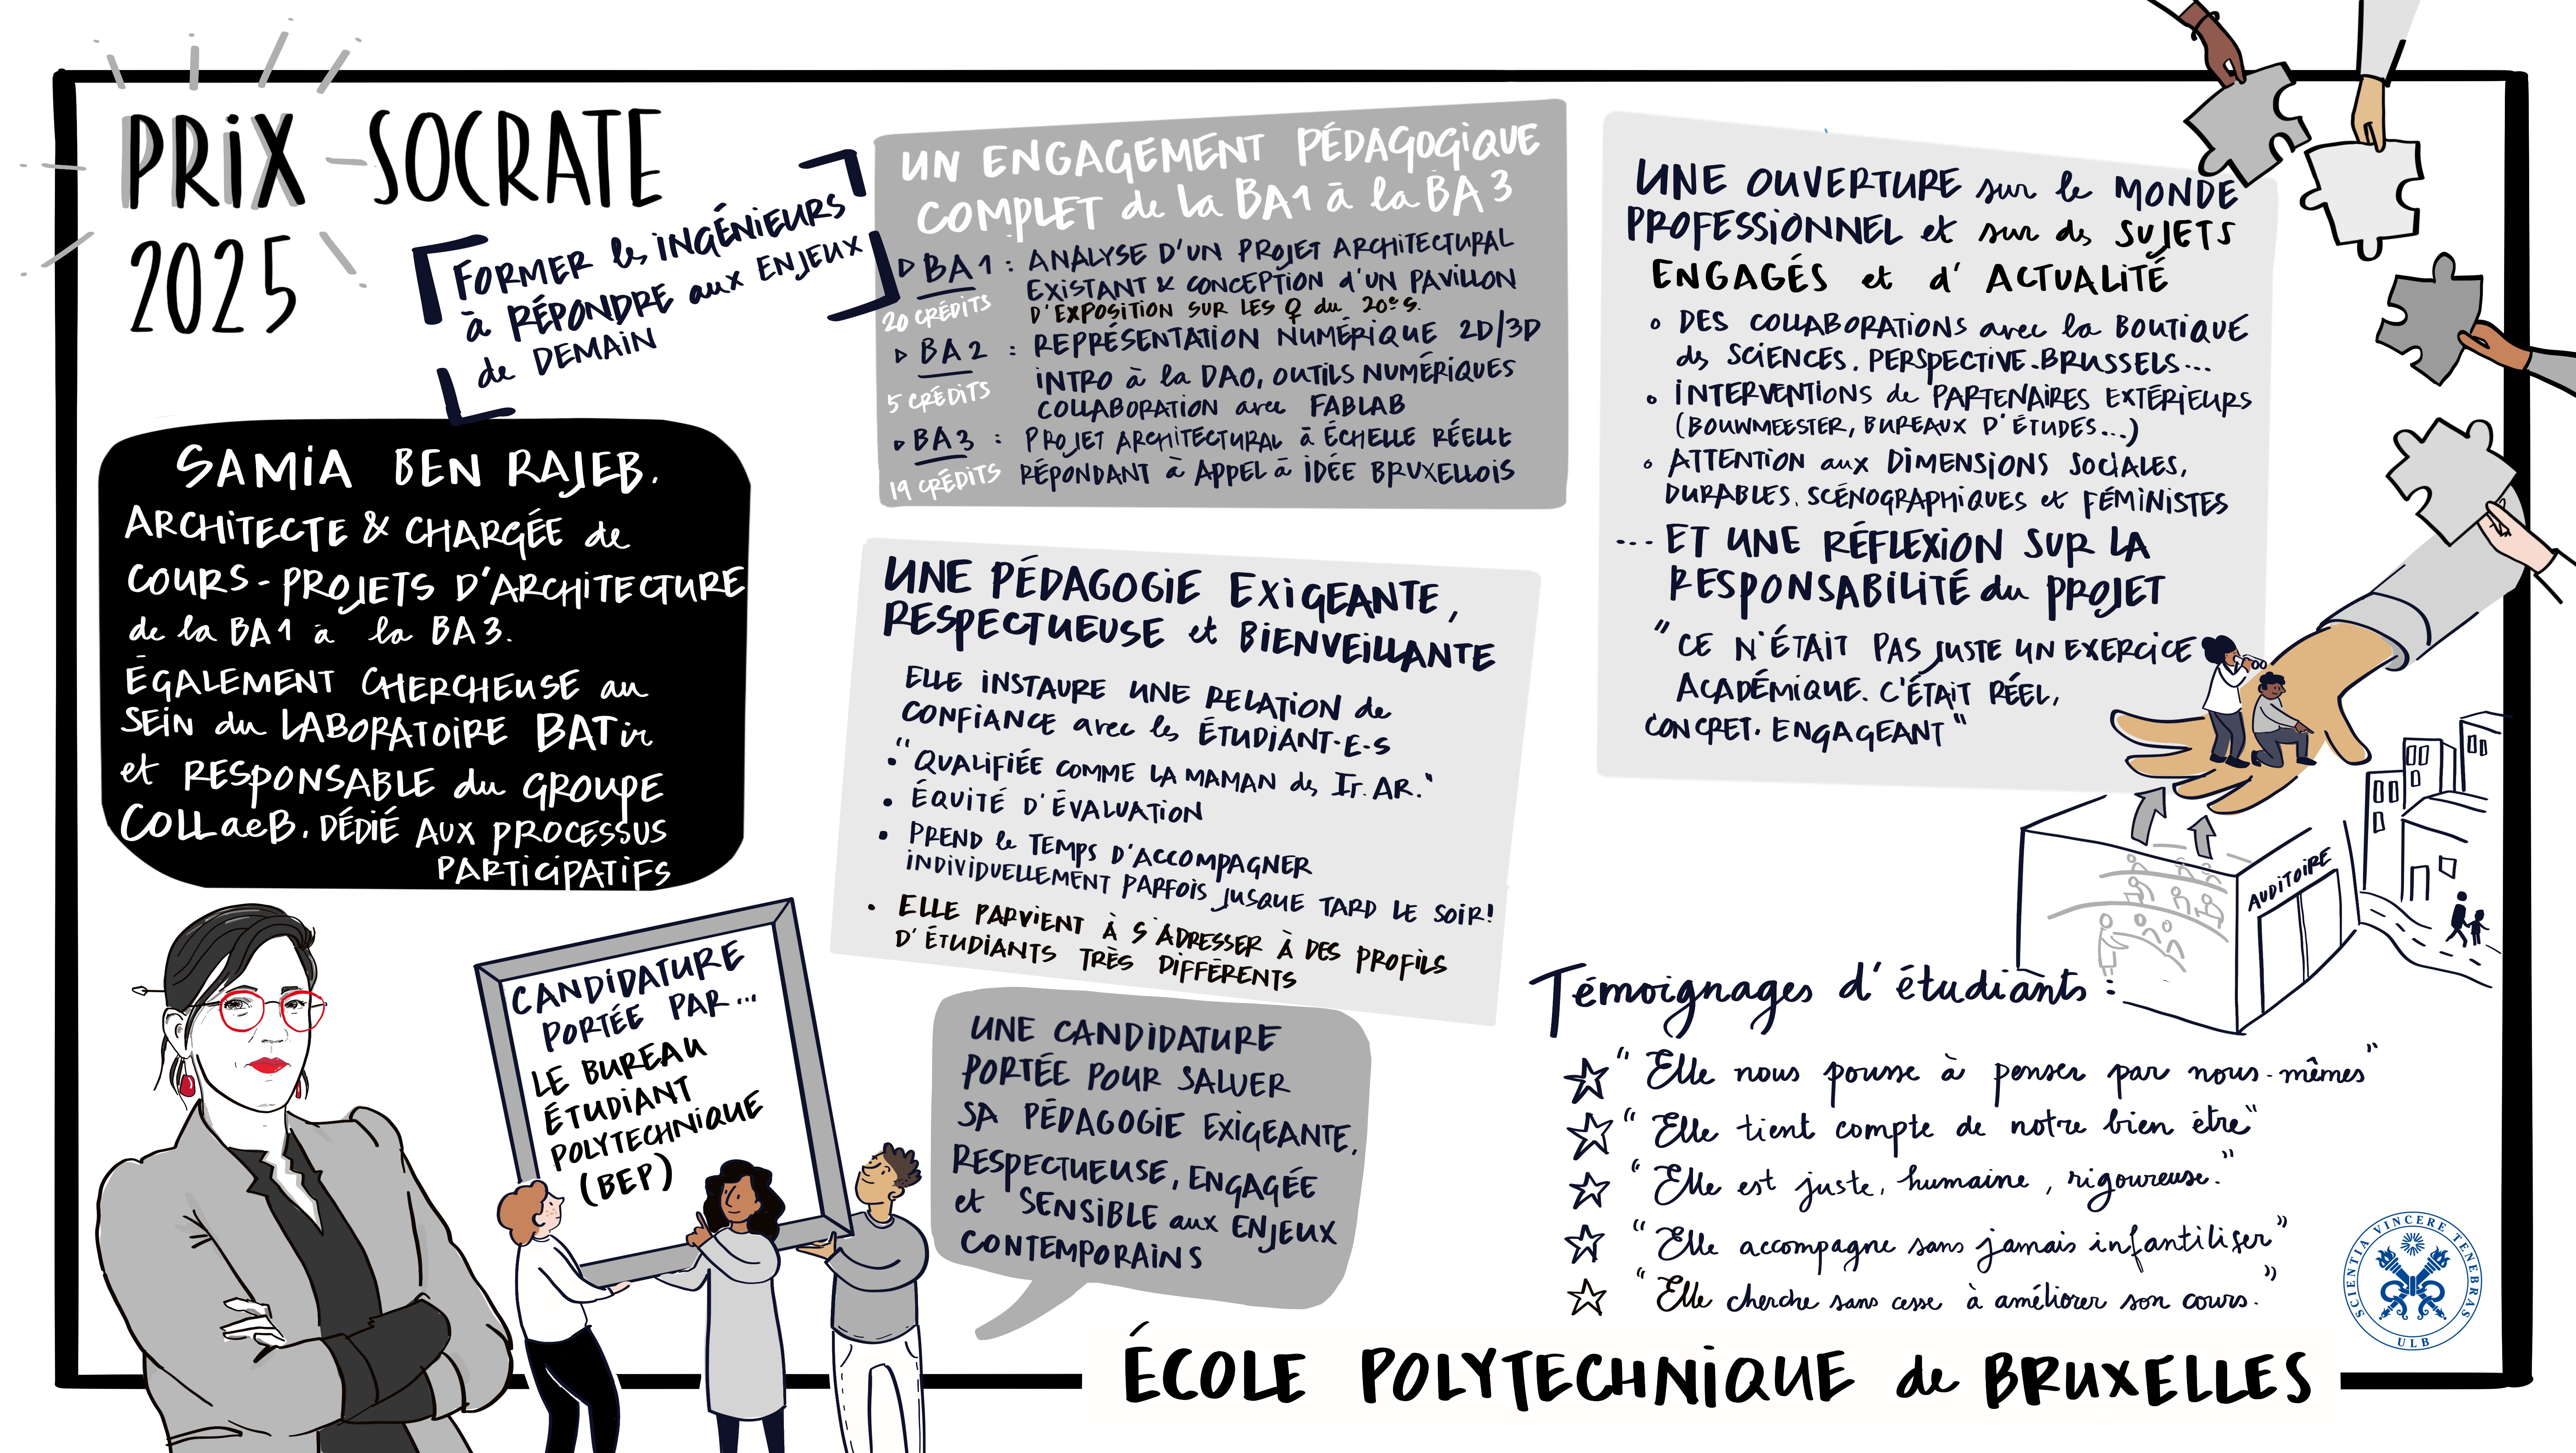 PRIX SOCRATE
2025
FORMER les INGÉNIEURS
à RÉPONDRE aux ENJEUX
de DEMAIN
SAMIA BEN RAJEB.
ARCHITECTE & CHARGÉE de
COURS - PROJETS D'ARCHITECTURE
de la BA1 à la BA3.
ÉGALEMENT CHERCHEUSE au
SEIN du LABORATOIRE BATir
et RESPONSABLE du GROUPE
COLLaeB. DÉDIÉ AUX PROCESSUS
PARTICIPATIFS
CANDIDATURE
PORTÉE PAR...
LE BUREAU
ÉTUDIANT
POLYTECHNIQUE
(BEP)
UN ENGAGEMENT PÉDAGOGIQUE
COMPLET de la BA1 à la BA3
BA1 : ANALYSE D'UN PROJET ARCHITECTURAL
EXISTANT & CONCEPTION d'UN PAVILLON
20 CRÉDITS D'EXPOSITION SUR LES ♀ du 20e s.
BA2 : REPRÉSENTATION NUMÉRIQUE 2D/3D
INTRO à la DAO, OUTILS NUMÉRIQUES
5 CRÉDITS COLLABORATION avec FABLAB
BA3 : PROJET ARCHITECTURAL à ÉCHELLE RÉELLE
19 CRÉDITS RÉPONDANT à APPEL à IDÉE BRUXELLOIS
UNE PÉDAGOGIE EXIGEANTE,
RESPECTUEUSE et BIENVEILLANTE
ELLE INSTAURE UNE RELATION de
CONFIANCE avec les ÉTUDIANT-E-S
• "QUALIFIÉE COMME LA MAMAN des Ir. AR."
• ÉQUITÉ D'ÉVALUATION
• PREND le TEMPS D'ACCOMPAGNER
INDIVIDUELLEMENT PARFOIS JUSQUE TARD LE SOIR!
• ELLE PARVIENT À S'ADRESSER À DES PROFILS
D'ÉTUDIANTS TRÈS DIFFÉRENTS
UNE CANDIDATURE
PORTÉE POUR SALUER
SA PÉDAGOGIE EXIGEANTE,
RESPECTUEUSE, ENGAGÉE
et SENSIBLE aux ENJEUX
CONTEMPORAINS
UNE OUVERTURE sur le MONDE
PROFESSIONNEL et sur des SUJETS
ENGAGÉS et d'ACTUALITÉ
o DES COLLABORATIONS avec la BOUTIQUE
des SCIENCES. PERSPECTIVE.BRUSSELS...
o INTERVENTIONS de PARTENAIRES EXTÉRIEURS
(BOUWMEESTER, BUREAUX D'ÉTUDES...)
o ATTENTION aux DIMENSIONS SOCIALES,
DURABLES. SCÉNOGRAPHIQUES et FÉMINISTES
--- ET UNE RÉFLEXION SUR LA
RESPONSABILITÉ du PROJET
"CE N'ÉTAIT PAS JUSTE UN EXERCICE
ACADÉMIQUE. C'ÉTAIT RÉEL,
CONCRET. ENGAGEANT"
AUDITOIRE
Témoignages d'étudiants :
"Elle nous pousse à penser par nous-mêmes"
"Elle tient compte de notre bien être"
"Elle est juste, humaine, rigoureuse."
"Elle accompagne sans jamais infantiliser"
"Elle cherche sans cesse à améliorer son cours."
SCIENTIA VINCERE TENEBRAS
ULB
ÉCOLE POLYTECHNIQUE de BRUXELLES